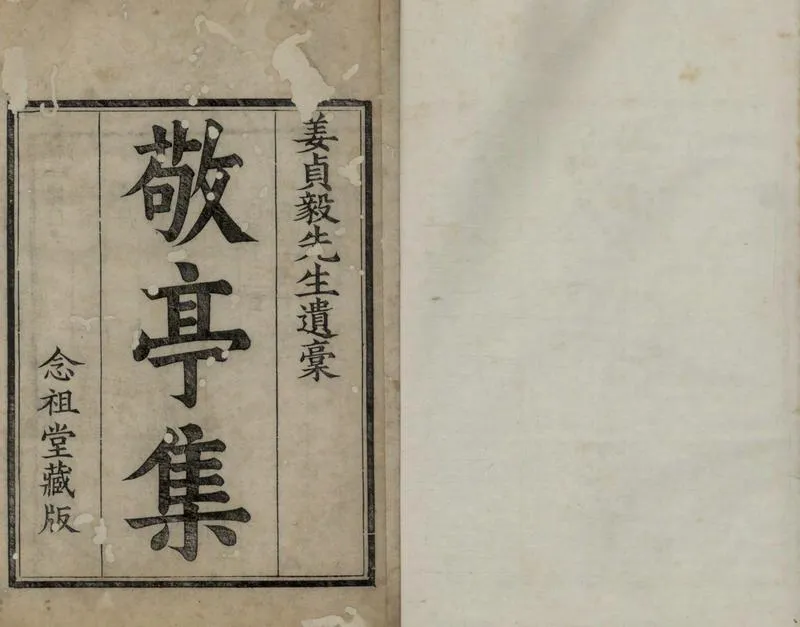 姜貞毅先生遺稾
敬亭集
念祖堂藏版